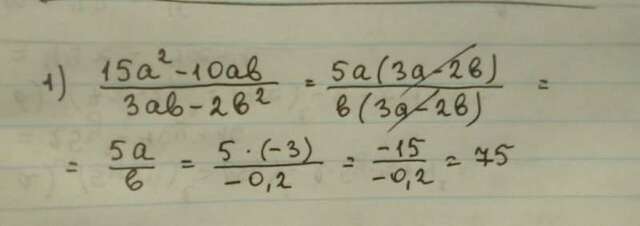 1) (15a² - 10ab)/(3ab - 2b²) = (5a(3a - 2b))/(b(3a - 2b)) =
= 5a/b = (5 · (-3))/(-0,2) = (-15)/(-0,2) = 75